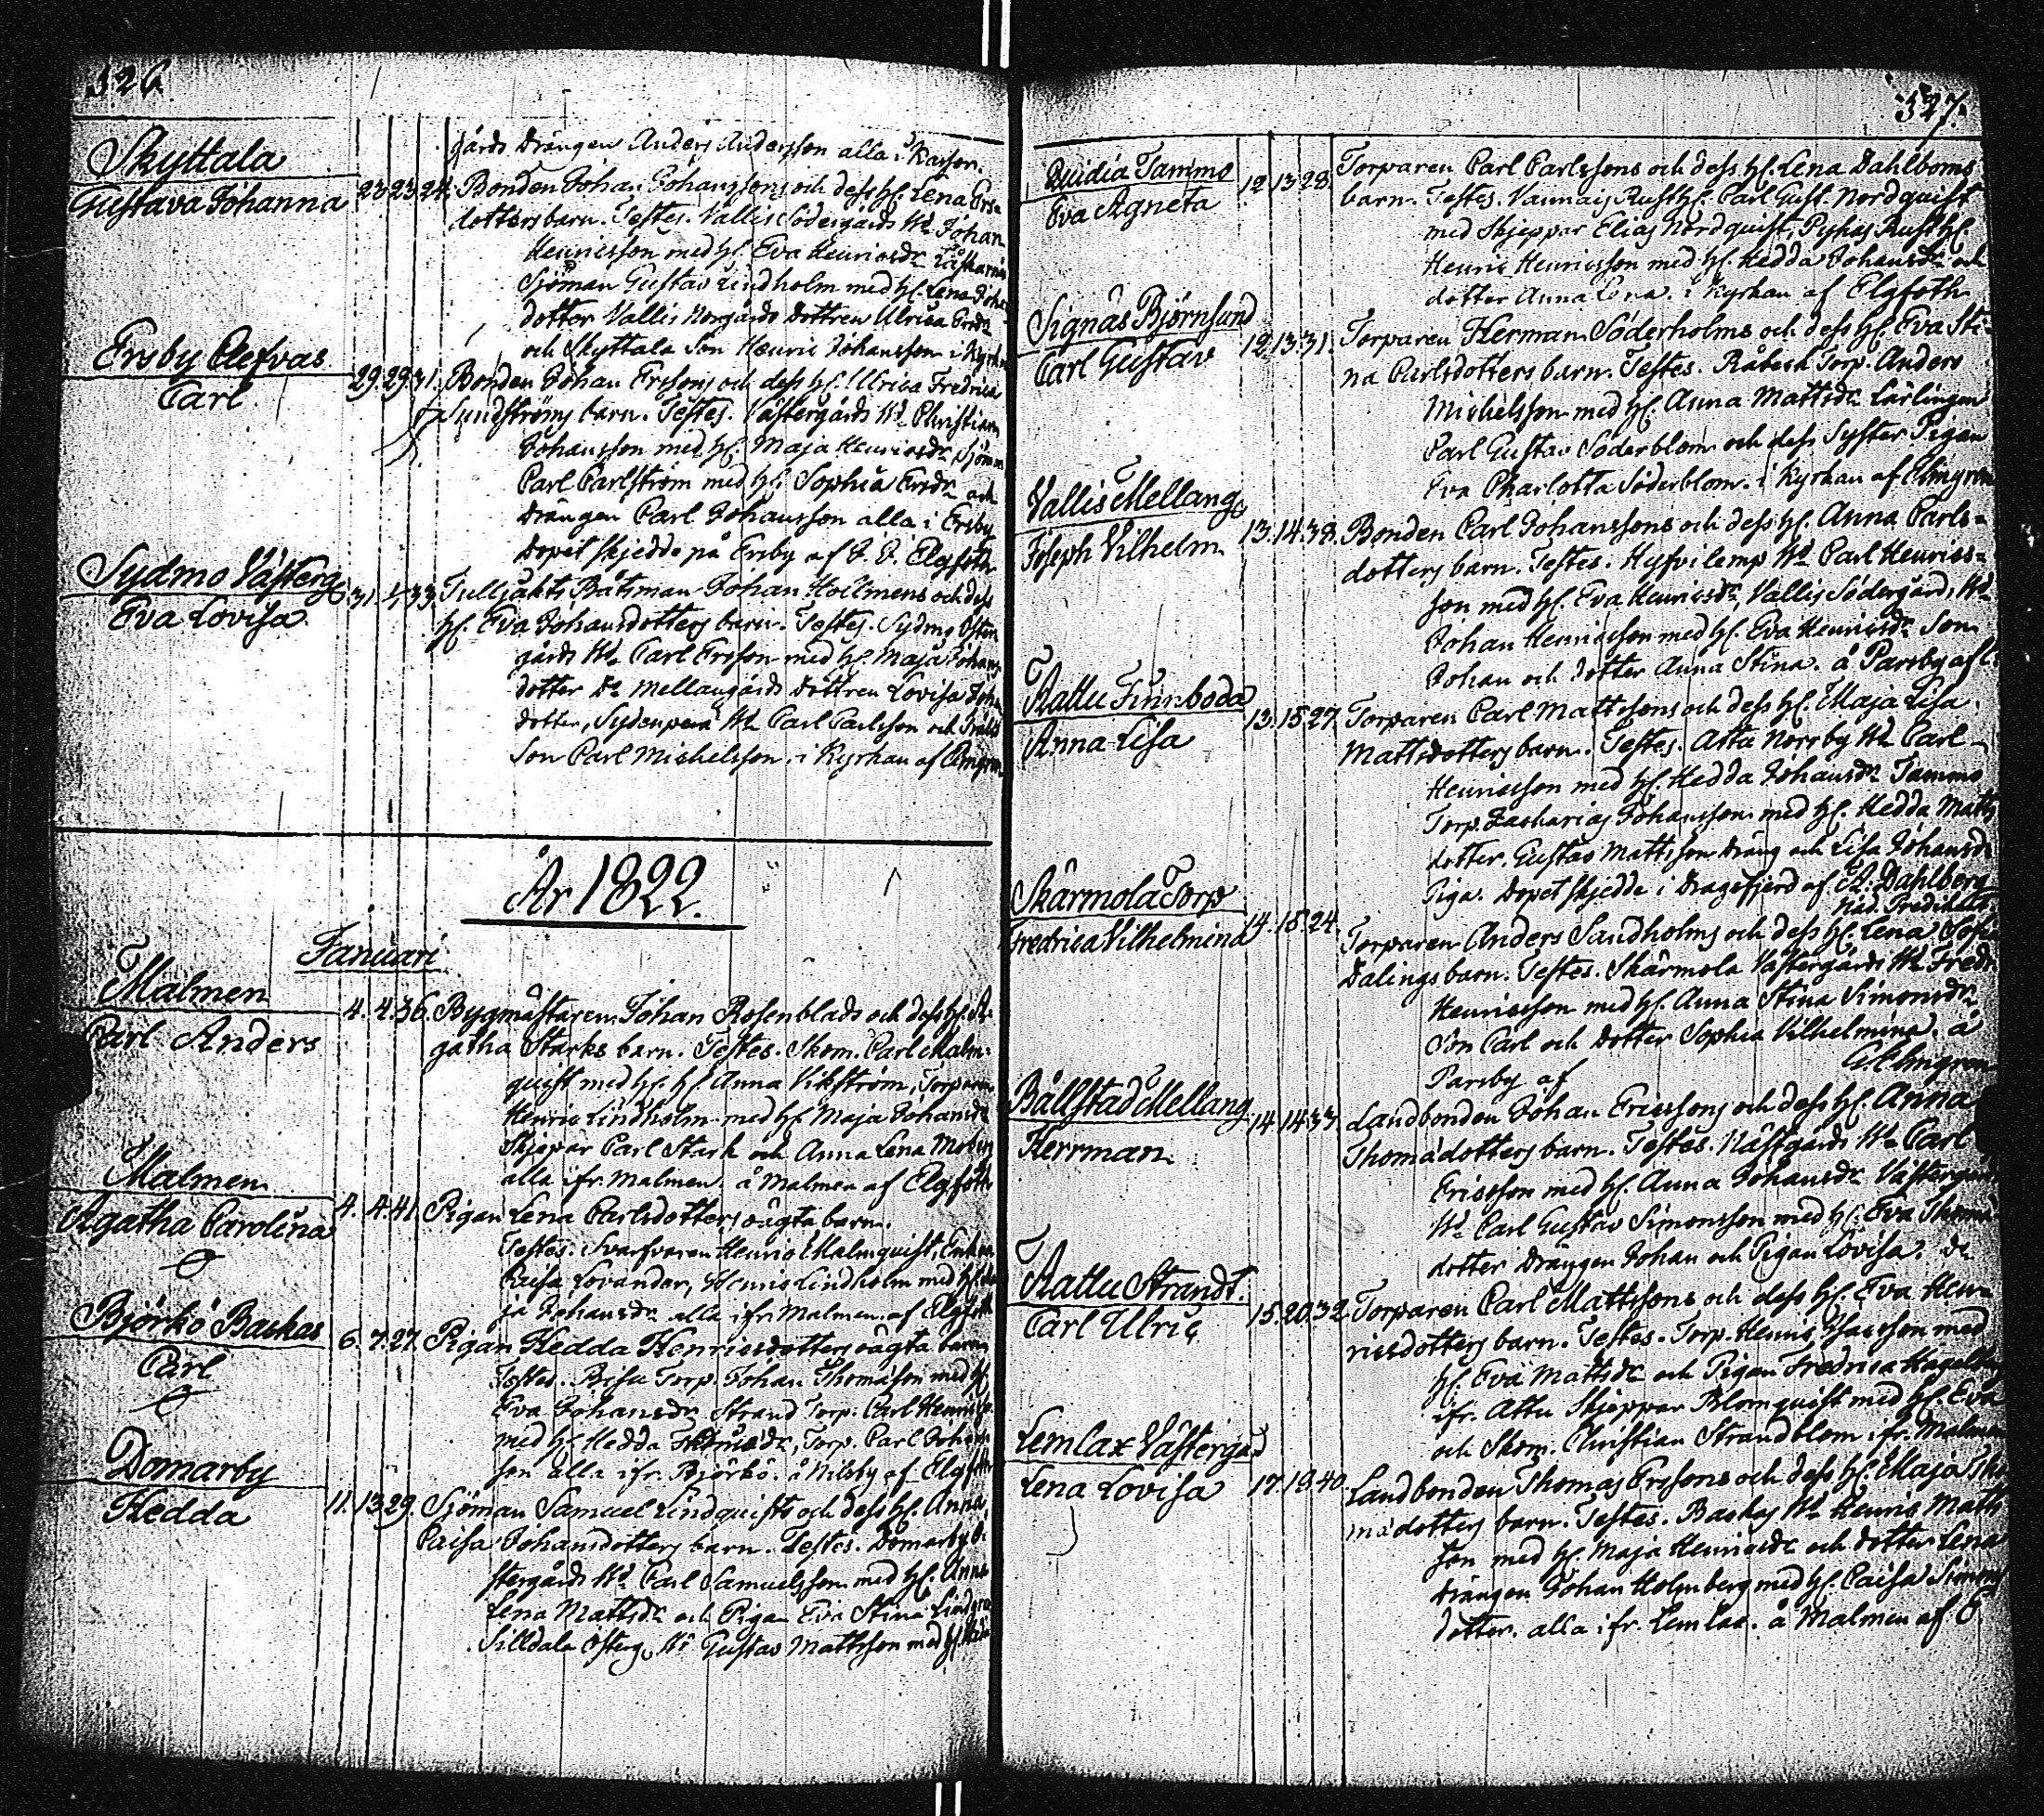 326.
gårds Drängen Anders Andersson alla i Karson.
Skyttala
Gustava Johanna 23. 23. 24. Bonden Johan Johanssons och dess H. Lena Ers-
dotters barn. Testes. Vallis Södergårds Wd Johan
Henricsson med H. Eva Henricsdr
Sjöman Gustav Lindholm med H. Lena Johans
dotter Vallis Norgårds Dottren Ulrica Ersdr
och Skyttala Son Henric Johansson i Kyrkan
Ersby Clefvas
Carl 29. 29. 31. Bonden Johan Erssons och dess H. Ulrica Fredrica
Sundströms barn. Testes. Västergårds Wd Christian
Johansson med H. Maja Henricsdr Sjöman
Carl Carlström med H. Sophia Ersdr och
Drängen Carl Johansson alla i Ersby
Dopet skjedde på Ersby af Elgfoth
Sydmo Västerg
Eva Lovisa 31. 4. 33. Tulljakts Båtsman Johan Hollmens och dess
H. Eva Johansdotters barn. Testes. Sydmo Öster
gårds Wd Carl Ersson med H. Maja Johans
dotter Do Mellangårds Dottren Lovisa Johans
dotter, Sydenperä Wd Carl Carlsson och
Son Carl Michelsson. i Kyrkan af Elmgren
År 1822.
Januari
Malmen
Carl Anders 4. 4. 36. Bygmästaren Johan Rosenblads och dess H. A-
gatha Starks barn. Testes. Skom. Carl Malm-
quist med H. H. Anna Vikström, Torparen
Henric Lindholm med H. Maja Johansdr
Skjepar Carl Stark och Anna Lena Moberg
alla ifr. Malmen. å Malmen af Elgfoth
Malmen
Agatha Carolina 4. 4. 41. Pigan Lena Carlsdotters oägta barn.
Testes. Svarfvaren Henric Malmquist, Enkan
Caisa Lovander, Henric Lindholm med H. Ma
ja Johansdr alla ifr. Malmen. af Elgfoth
Björkö Backas
Carl 6. 7. 27. Pigan Hedda Henricsdotters oägta barn
Testes. Bisu Torp. Johan Thomasson med H.
Eva Johansdr Strand Torp. Carl Henricss
med H. Hedda Thomasdr, Torp. Carl Johans
son alla ifr. Björkö. å Nilsby af Elgfoth
Domarby
Hedda 11. 13. 29. Sjöman Samuel Lindquists och dess H. Anna
Caisa Johansdotters barn. Testes. Domarby Ö-
stergårds Wd Carl Samuelsson med H. Anna
Lena Mattsdr och Pigan Eva Stina Lindgren
Silldala Österg. Wd Gustav Mattsson med H. Hedda
327.
Tammo
Eva Agneta 12. 13. 28. Torparen Carl Carlssons och dess H. Lena Dahlboms
barn. Testes. Vannais Rusth. Carl Gust. Nordquist
med Skjeppar Elias Nordquist, Pyhas Rusth.
Henric Henricsson med H. Hedda Johansdr och
dotter Anna Lena. i Kyrkan af Elgfoth
Signäs Björnsund
Carl Gustav 12. 13. 31. Torparen Herman Söderholms och dess H. Eva Sti-
na Carlsdotters barn. Testes. Råbeck Torp. Anders
Michelsson med H. Anna Mattsdr Lärlingen
Carl Gustav Söderblom och dess Syster Pigan
Eva Charlotta Söderblom. i Kyrkan af Elmgren
Vallis Mellang
Joseph Vilhelm 13. 14. 38. Bonden Carl Johanssons och dess H. Anna Carls-
dotters barn. Testes. Hyfvilemp Wd Carl Henrics-
son med H. Eva Henricsdr, Vallis Södergårds Wd
Johan Henricsson med H. Eva Henricsdr Son
Johan och dotter Anna Stina. å Parsby af
Attu Finnboda
Anna Lisa 13. 15. 27. Torparen Carl Mattssons och dess H. Maja Lisa
Mattsdotters barn. Testes. Attu Norrby Wd Carl
Henricsson med H. Hedda Johansdr Tammo
Torp. Zacharias Johansson med H. Hedda Matts
dotter. Gustav Mattsson Dräng och Lisa Johansdr
Piga. Dopet skjedde i Dragsfjerd af A. Dahlberg
Nåd. Predikant
Skärmola Torp
Fredrica Vilhelmina 14. 15. 24. Torparen Anders Sandholms och dess H. Lena Sofia
Dalings barn. Testes. Skärmola Västergårds Wd Fredr.
Henricsson med H. Anna Stina Simonsdr
Son Carl och Dotter Sophia Vilhelmina. å
Parsby af G. Elmgren
Bällstad Mellang.
Herrman 14. 14. 33. Landbonden Johan Ericssons och dess H. Anna
Thomädotters barn. Testes. Näsgårds Wd Carl
Ericsson med H. Anna Johansdr Västergårds
Wd Carl Gustav Simonsson med H. Eva Thoma
dotter Drängen Johan och Pigan Lovisa. Do
Attu Strandt.
Carl Ulric 15. 20. 32. Torparen Carl Mattssons och dess H. Eva Hen-
ricsdotters barn. Testes. Torp. Henric Isacsson med
H. Eva Mattsdr och Pigan Fredrica
ifr. Attu Skjeppar Blomquist med H. Eva
och Skom. Christian Strandblom ifr. Malmen
Lemlax Västergrd
Lena Lovisa 17. 19. 40. Landbonden Thomas Erssons och dess H. Maja Tho-
mädotters barn. Testes. Backas Wd Henric Matts
son med H. Maja Henricsdr och dotter Lena
Drängen Johan Holmberg med H. Caisa Simons
dotter. alla ifr. Lemlax. å Malmen af E